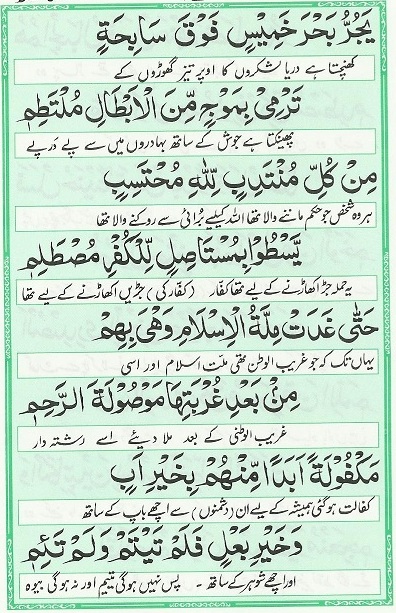 يَجُرُّ بَحْرَ خَمِيْسٍ فَوْقَ سَابِحَةٍ
کھنچتا ہے دریا لشکروں کا اوپر تیز گھوڑوں کے
تَرْمِىْ بِمَوْجٍ مِّنَ الْاَبْطَالِ مُلْتَطِمٖ
پھینکتا ہے جوش کے ساتھ بہادروں میں سے پے درپے
مِنْ كُلِّ مُنْتَدِبٍ لِلّٰهِ مُحْتَسِبٍ
ہر وہ شخص جو حکم ماننے والا تھا اللہ کیلئے برائی سے روکنے والا تھا
يَسْطُوْا بِمُسْتَاصِلٍ لِّلْكُفْرِ مُصْطَلِمٖ
یہ حملہ جڑ اکھاڑنے کے لیے تھا کفار (کفار کی) جڑیں اکھاڑنے کے لیے تھا
حَتّٰى غَدَتْ مِلَّةُ الْاِسْلَامِ وَهْىَ بِهِمْ
یہاں تک کہ جو غریب الوطن تھی ملت اسلام اور اسی
مِنْ بَعْدِ غُرْبَتِهَا مَوْصُوْلَةَ الرَّحِمٖ
غریب الوطنی کے بعد ملا دیئے اسے رشتہ دار
مَكْفُوْلَةً اَبَدًا مِّنْهُمْ بِخَيْرِ اَبٍ
کفالت ہوگئی ہمیشہ کے لیے ان (دشمنوں) سے اچھے باپ کے ساتھ
وَخَيْرِ بَعْلٍ فَلَمْ تَيْتَمْ وَلَمْ تَئِمٖ
اور اچھے شوہر کے ساتھ - پس نہیں ہوگی یتیم اور نہ ہوگی بیوہ